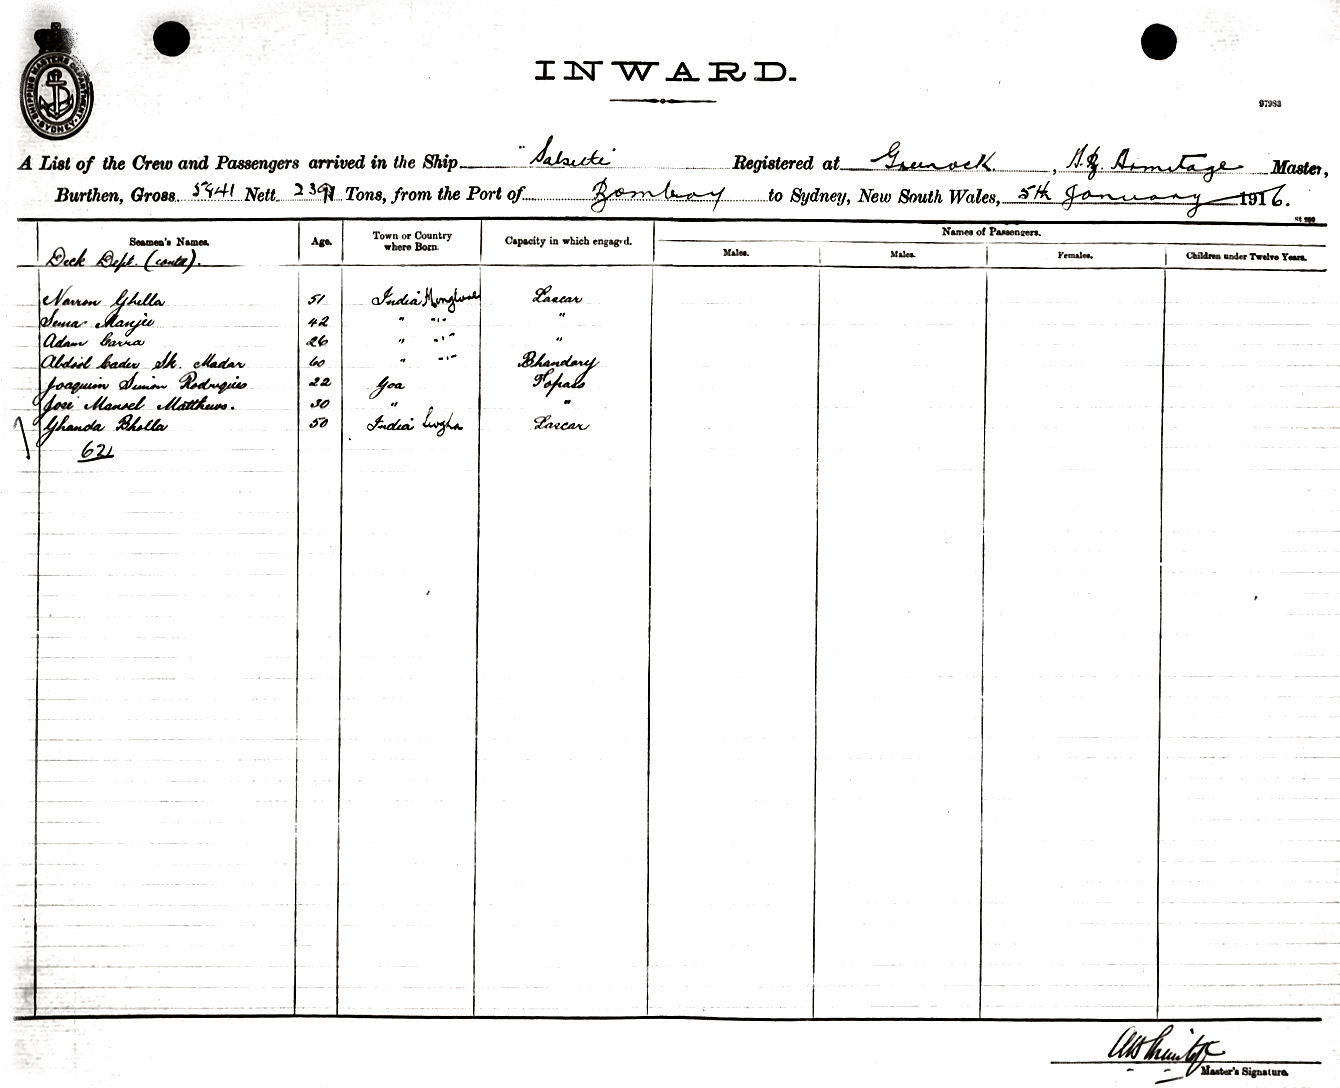 SHIPPING MASTERS DEPARTMENT
SYDNEY
INWARD.
97983
A List of the Crew and Passengers arrived in the Ship "Salsette" Registered at Greenock. , Armitage Master,
Burthen, Gross 5841 Nett 2391 Tons, from the Port of Bombay to Sydney, New South Wales, 5th January 1916.
Seamen's Names. Age. Town or Country where Born. Capacity in which engaged. Names of Passengers.
Males. Males. Females. Children under Twelve Years.
Deck Dept. (contd).
Narron Ghella 51 India Lascar
Sema Manjee 42 " " "
Adam Carra 26 " " "
Abdool Cader Sk. Madar 60 " " Bhandary
Joaquim Simon Rodrigues 22 Goa Topass
Jose Manoel Matthews. 30 " "
Ghanda Bhella 50 India Lascar
7
621
Master's Signature.